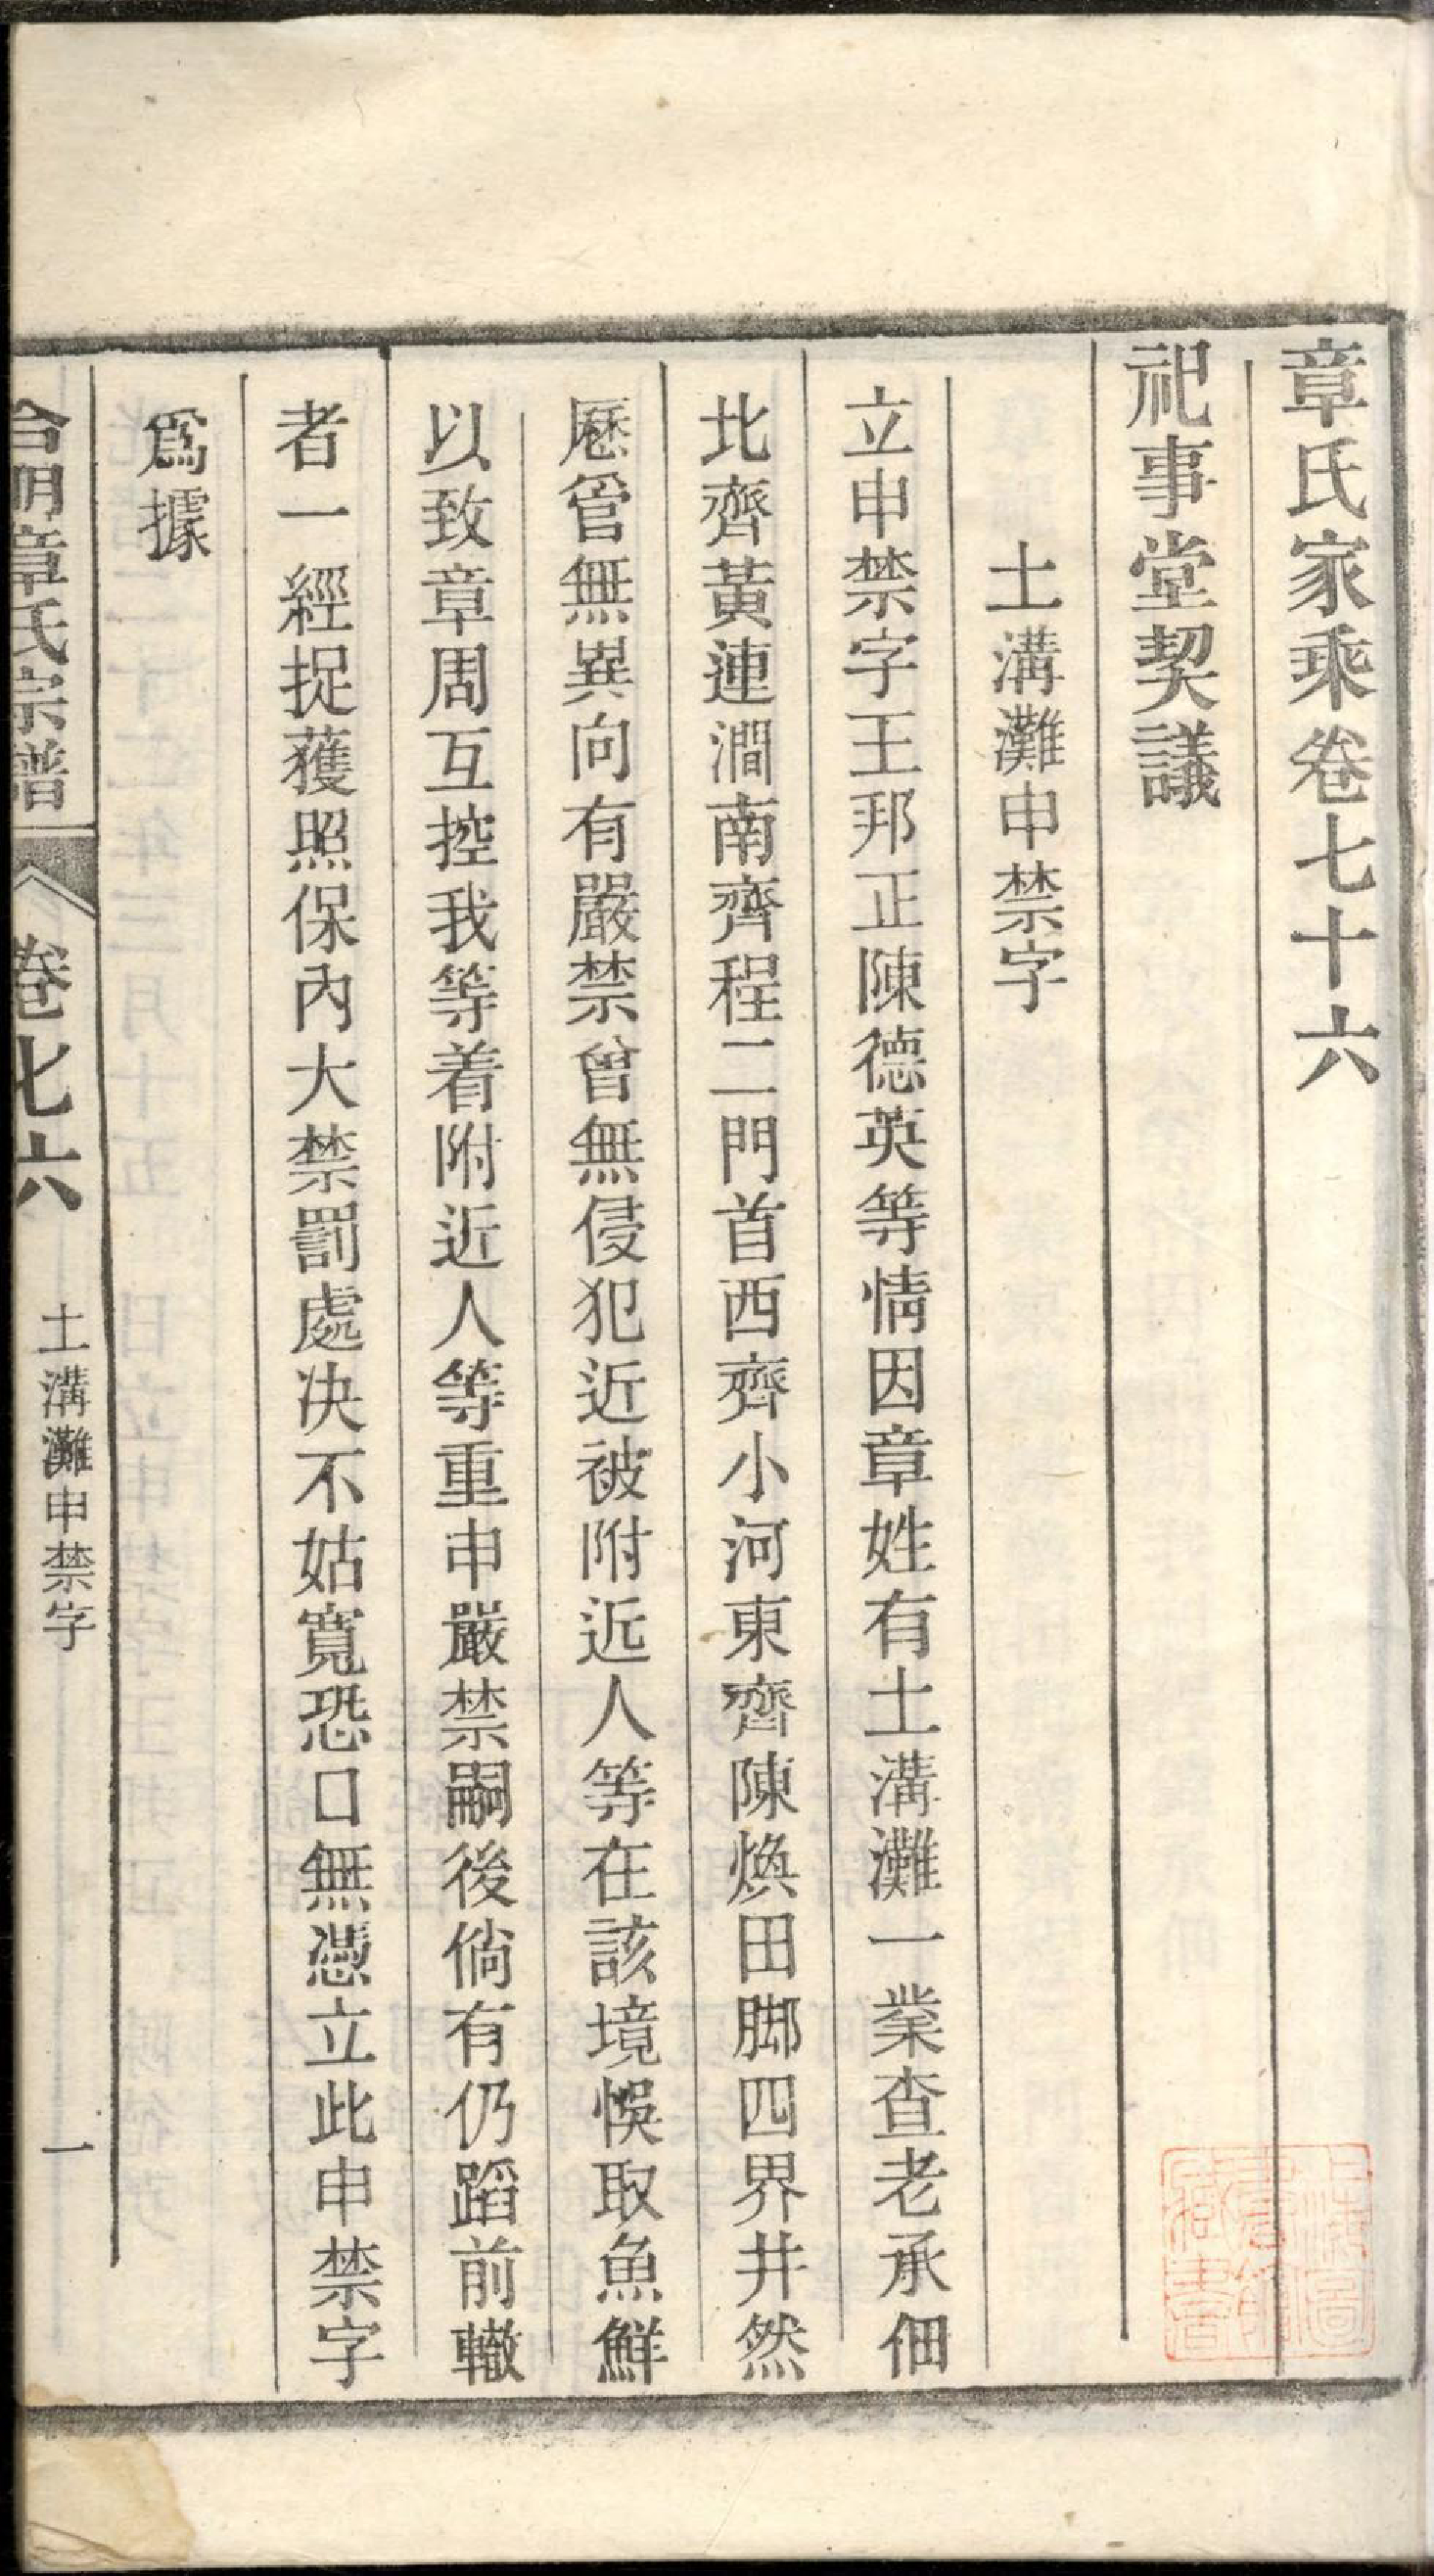 章氏家乘卷七十六
祀事堂契議
土溝灘申禁字
立申禁字王邦正陳德英等情因章姓有土溝灘一業查老承佃
北齊黃連澗南齊程二門首西齊小河東齊陳煥田脚四界井然
歷管無異向有嚴禁曾無侵犯近被附近人等在該境悞取魚鮮
以致章周互控我等着附近人等重申嚴禁嗣後倘有仍蹈前轍
者一經捉獲照保內大禁罰處決不姑寬恐口無憑立此申禁字
爲據
合明章氏宗譜
卷七六
土溝灘申禁字
一